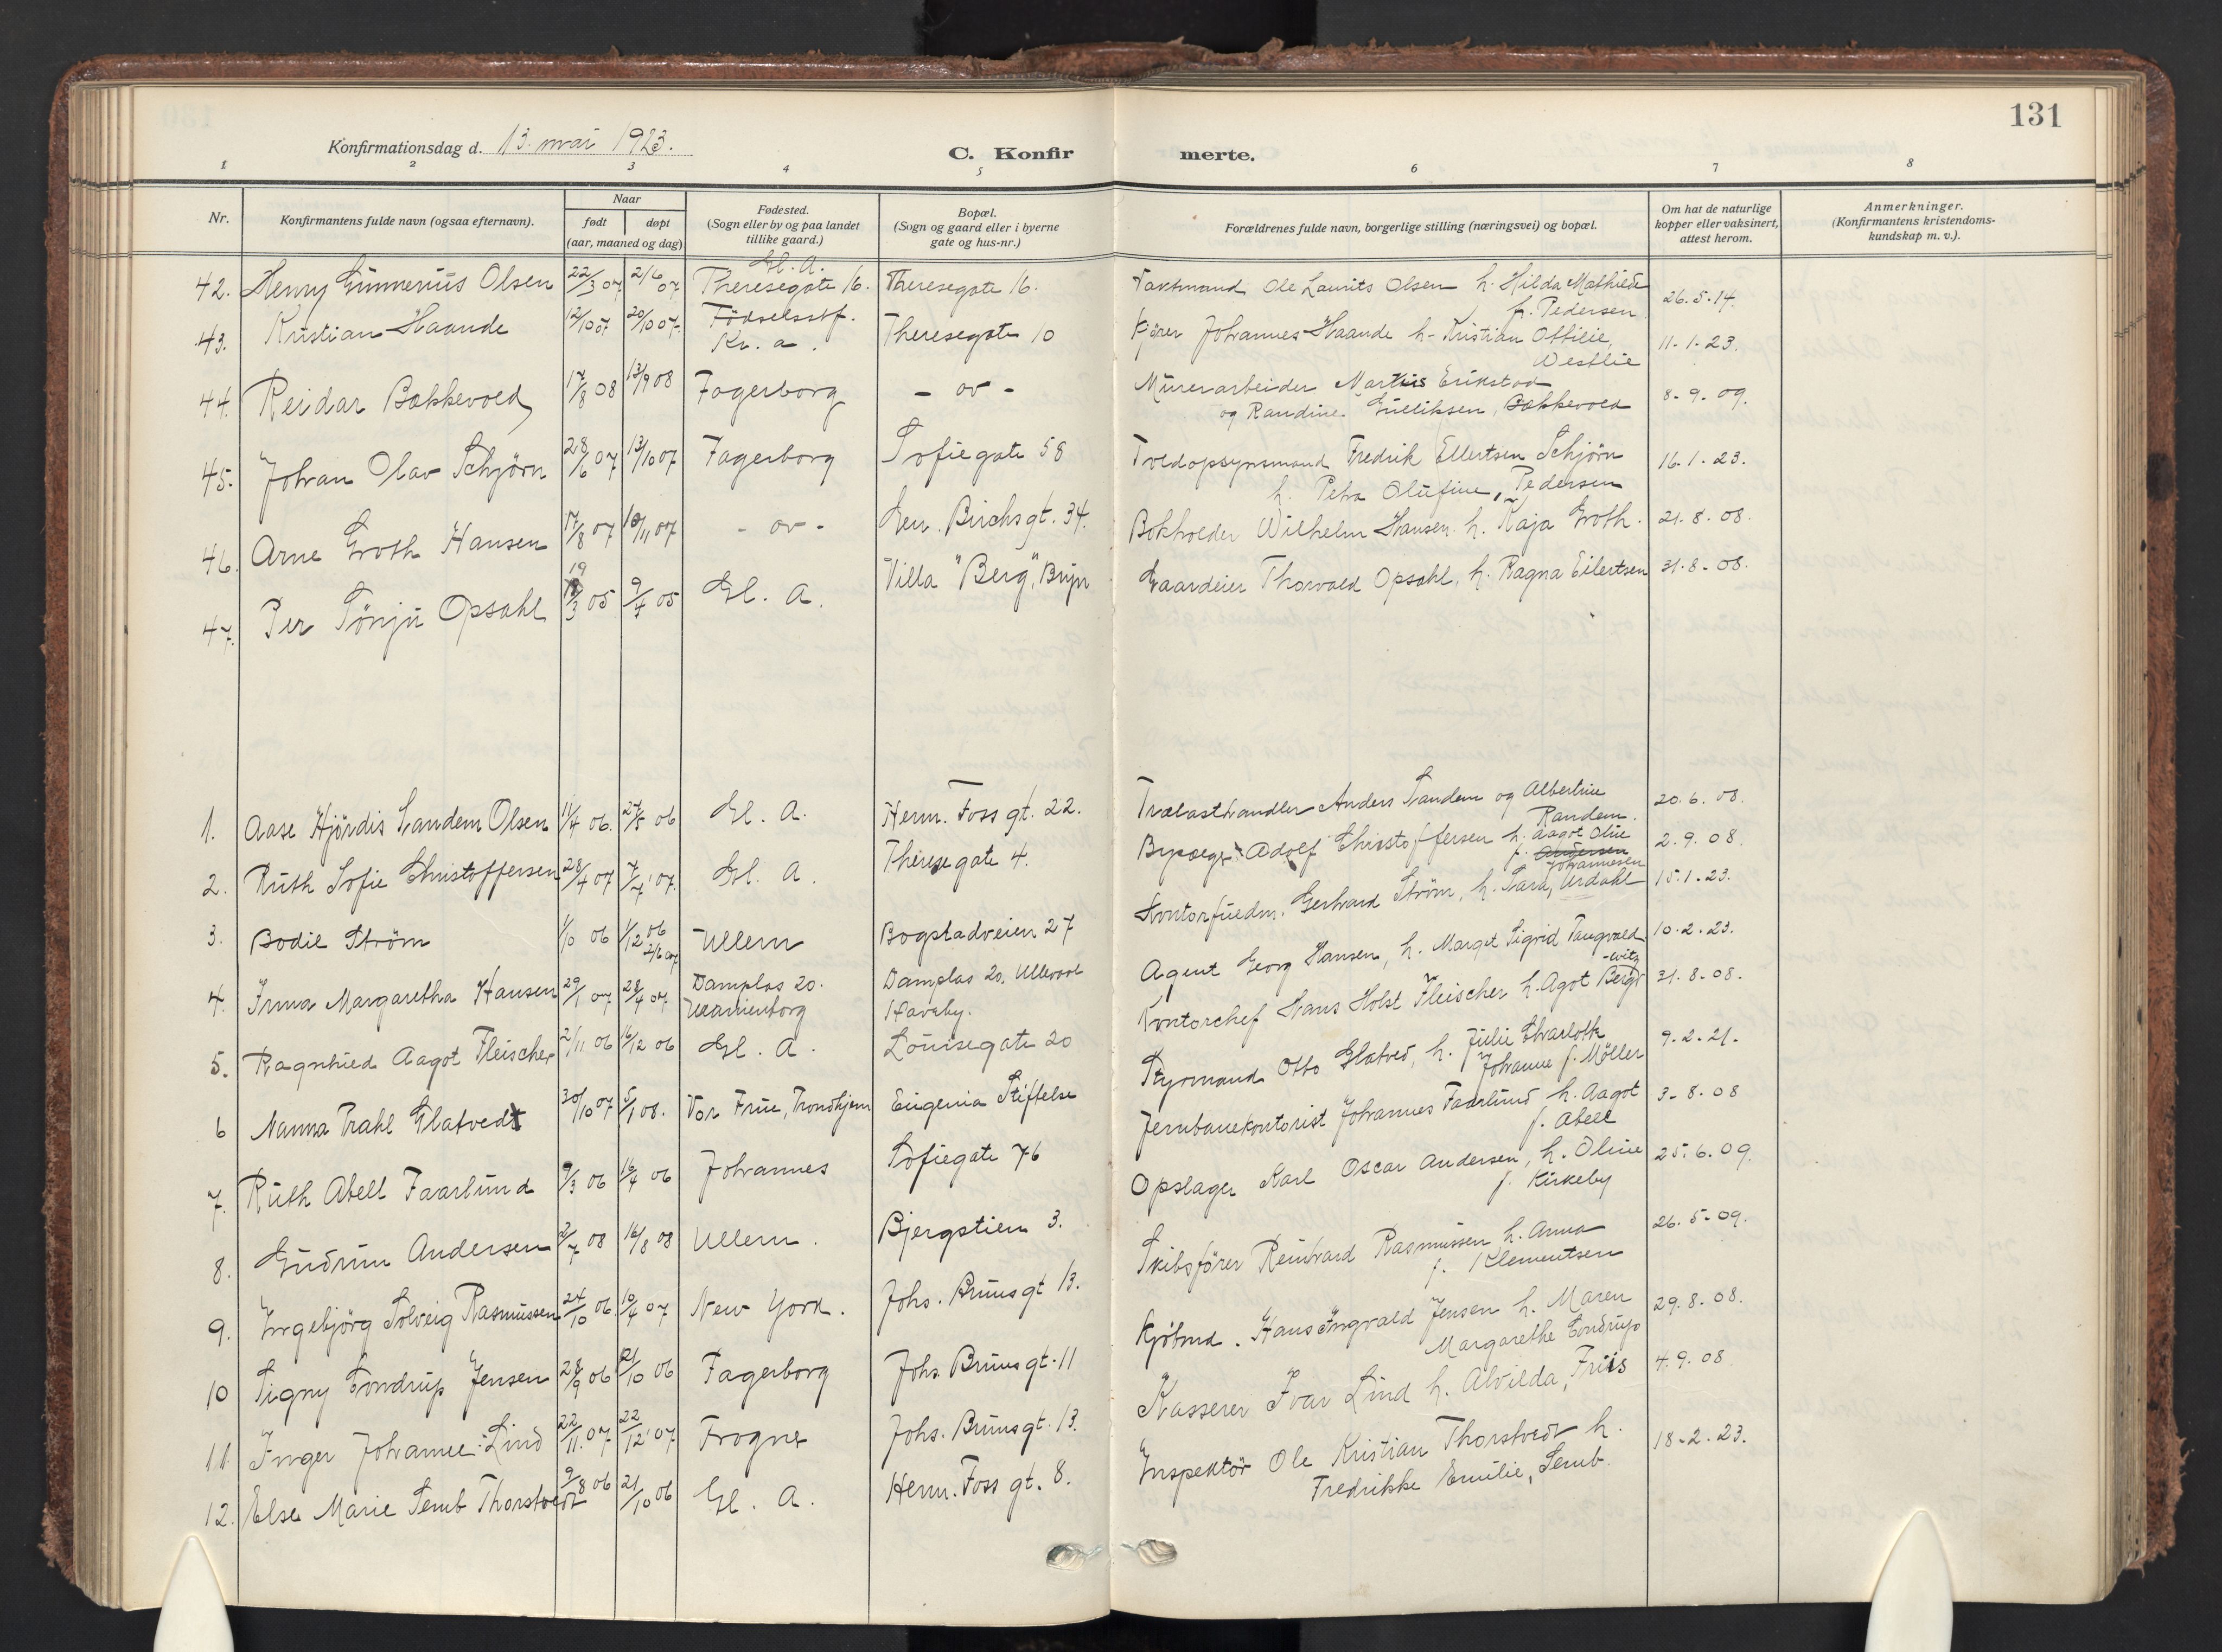 131
Konfirmationsdag d. 13. mai 1923.
C. Konfir
merte.
1 2 3 4 5 6 7 8
Nr.
Konfirmantens fulde navn (ogsaa efternavn).
Naar
født
døpt
(aar, maaned og dag)
Fødested.
(Sogn eller by og paa landet
tillike gaard.)
Bopæl.
(Sogn og gaard eller i byerne
gate og hus-nr.)
Forældrenes fulde navn, borgerlige stilling (næringsvei) og bopæl.
Om hat de naturlige
kopper eller vaksinert,
attest herom.
Anmerkninger.
(Konfirmantens kristendoms-
kundskap m. v.).
42. Henry Gunnerius Olsen 22/3 07 2/6 07 Gl. A. Theresegate 16. Theresegate 16. Vaktmand Ole Laurits Olsen h. Hilda Mathilde f. Pedersen 26.5.14.
43. Kristian Haande 12/10 07 20/10 07. Födselsstf. Kr. a. Theresegate 10 Kjører Johannes Haande h. Kristian Ottilie, Westlie 11.1.23.
44. Reidar Bakkevold 17/8 08 13/9 08 Fagerborg - ov - Murerarbeider Martius Erikstad og Randine Gulliksen, Bakkevold 8-9.09.
45. Johan Olav Schjörn 28/6 07 13/10 07 Fagerborg Sofiegate 58 Toldopsynsmand Fredrik Ellertsen Schjörn h. Petra Olufine, Pedersen 16.1.23.
46. Arne Groth Hansen 17/8 07 10/11 07 - ov - Gen. Birchsgt. 34. Bokholder Wilhelm Hansen h. Kaja Groth. 21.8.08.
47. Per Tönju Opsahl 19/3 05 9/4 05 Gl. A. Villa "Berg", Bryn Gaardeier Thorvald Opsahl, h. Ragna Eilertsen 31.8-08.
1. Aase Hjördis Sandem Olsen 11/4 06. 27/5 06 Gl. A. Herm. Foss gt. 22. Trælasthandler Anders Sandem og Albertine Randem. 20.6.08.
2. Ruth Sofie Christoffersen 28/4 07 7/7 07. Gl. A. Therese gate 4. Adolf Christoffersen h. Aagot Oline f. Andersen Johannesen 2.9.08.
3. Bodil Ström 1/10 06 1/12 06 Ullern Bogstadveien 27 Kontorfuldm. Gerhard Ström, h. Sara, Urdahl 15.1.23.
4. Irma Margaretha Hansen 29/1 07 28/4 07. Damplas 20. Uranienborg Damplas 20, Ullevaal Haveby. Agent Georg Hansen, h. Margit Sigrid Tangvald 10.2.23.
5. Ragnhild Aagot Fleischer 2/11 06 16/12 06 Gl. A. Louisegate 20 Kontorchef Hans Holst Fleischer h. Agot Bergwitz 31.8-08.
6 Nanna Prahl Glatvedt 30/10 07 5/1 08. Vor Frue, Trondhjem Eugenia Stiftelse Styrmand Otto Glatved, h. Julie Charlotte Johanne f. Möller 9.2-21.
7. Ruth Abell Faarlund 9/3 06 16/4 06 Johannes Sofiegate 76 Jernbanekontorist Johannes Faarlund h. Aagot f. Abell 3-8.08
8. Gudrun Andersen 2/7 08 16/8 08 Ullern. Bjergstien 3. Opslager Karl Oscar Andersen, h. Oline f. Kirkeby 25.6.09.
9. Ingebjörg Solveig Rasmussen 24/10 06. 10/4 07 New York. Johs. Bruns gt 13. Skibsförer Reinhard Rasmussen h. Anna f. Klementsen 26.5-09.
10 Signy Tondrup Jensen 28/9 06 21/10 06 Fagerborg Johs. Bruns gt. 11 Kjøbmd. Hans Ingvald Jensen h. Maren Margarethe Tondrup 29.8.08.
11. Inger Johanne Lind 22/11.07. 22/12 07 Frogner Johs. Bruns gt. 13. Kasserer Ivar Lind h. Alvilda, Friis 4.9.08.
12. Else Marie Semb Thorstvedt 9/8 06 21/10 06 Gl. A. Herm. Foss gt. 8. Inspektör Ole Kristian Thorstvedt h. Fredrikke Emilie, Semb. 18-2.23.